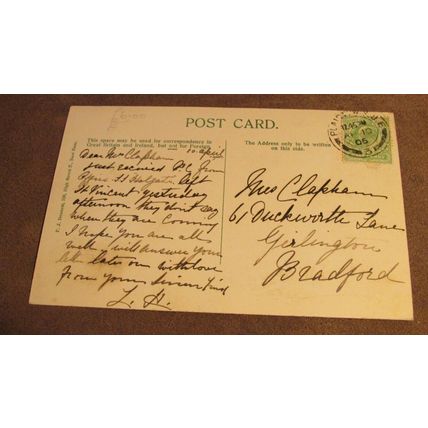 6.00
POST CARD.
This space may be used for correspondence in
Great Britain and Ireland, but not for Foreign
The Address only to be written
on this
10 April
Dear Mrs Clapham
Just received P.C. from
Left
St Vincent yesterday
afternoon they don't say
when they are coming
I hope you are all
well & will answer your
later on with love
from your sincere friend
L. H.
Mrs Clapham
61 Duckworth Lane
Girlington
Bradford
12.15 PM
AP 10
05